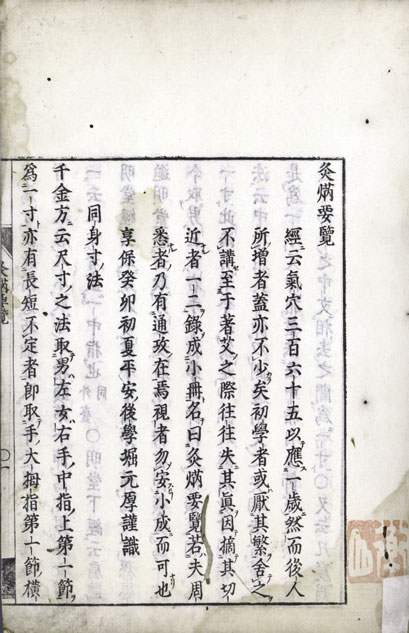 灸焫要覽
經云氣穴三百六十五以應一歲然而後人
所增者蓋亦不少矣初學者或厭其繁舍之
不講至于著艾之際往往失其眞因摘其切
近者一二錄成小冊名曰灸焫要覽若夫周
悉者乃有通攷在焉視者勿安小成而可也
享保癸卯初夏平安後學堀元厚謹識
同身寸法
千金方云尺寸之法取男左女右手中指上第一節
爲一寸亦有長短不定者卽取手大拇指第一節橫